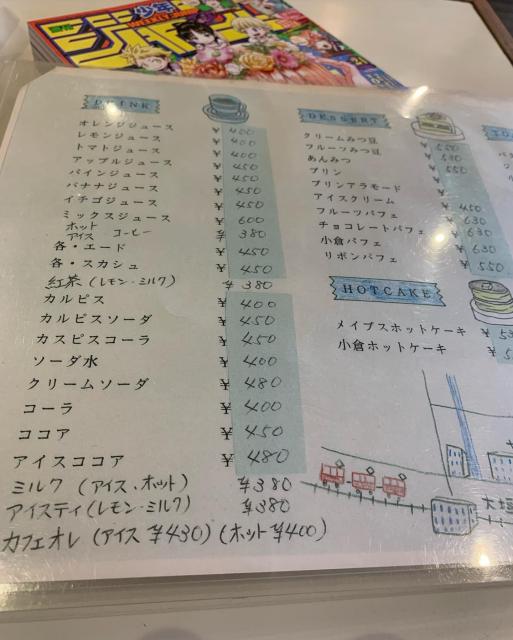 少年
WEEKLY
ジャンプ
DRINK
オレンジジュース ¥400
レモンジュース ¥400
トマトジュース ¥400
アップルジュース ¥450
パインジュース ¥450
バナナジュース ¥450
イチゴジュース ¥450
ミックスジュース ¥600
ホット アイス コーヒー ¥380
各・エード ¥450
各・スカシュ ¥450
紅茶(レモン・ミルク) ¥380
カルピス ¥400
カルピスソーダ ¥450
カスピスコーラ ¥450
ソーダ水 ¥400
クリームソーダ ¥480
コーラ ¥400
ココア ¥450
アイスココア ¥480
ミルク (アイス、ホット) ¥380
アイスティ(レモン・ミルク) ¥380
カフェオレ (アイス ¥430) (ホット ¥400)
DESSERT
クリームみつ豆 ¥
フルーツみつ豆 ¥
あんみつ ¥
プリン ¥
プリンアラモード ¥
アイスクリーム ¥450
フルーツパフェ ¥630
チョコレートパフェ ¥630
小倉パフェ ¥630
リボンパフェ ¥550
HOTCAKE
メイプスホットケーキ ¥
小倉ホットケーキ ¥
大垣